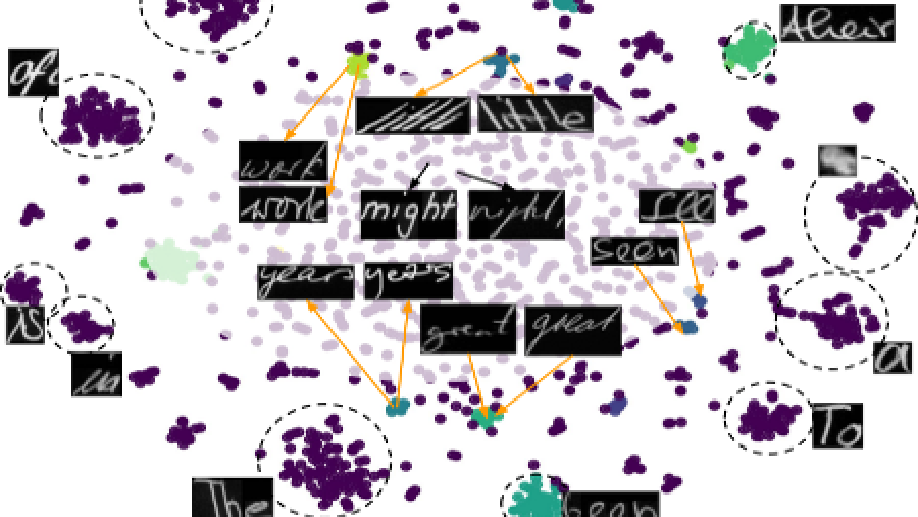 their
of
little little
work
work might night, see
seen
years years
great great
is
in
a
To
The been